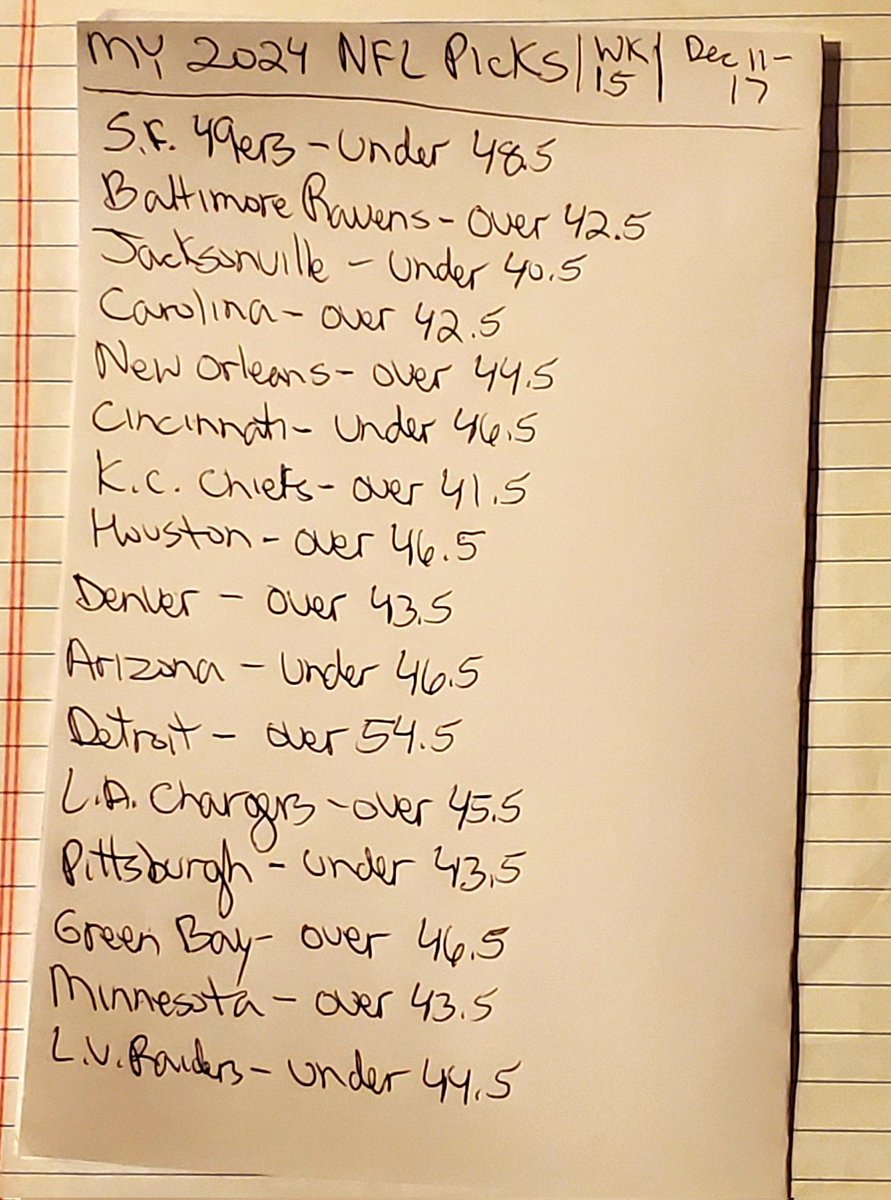 MY 2024 NFL Picks | WK 15 | Dec 11-17
S.F. 49ers - Under 48.5
Baltimore Ravens - over 42.5
Jacksonville - Under 40.5
Carolina - over 42.5
New Orleans - over 44.5
Cincinnati - Under 46.5
K.C. Chiefs - over 41.5
Houston - over 46.5
Denver - over 43.5
Arizona - Under 46.5
Detroit - over 54.5
L.A. Chargers - over 45.5
Pittsburgh - Under 43.5
Green Bay - over 46.5
Minnesota - over 43.5
L.V. Raiders - Under 44.5